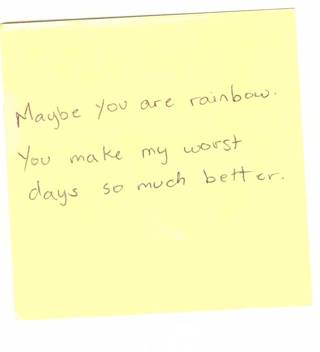 Maybe you are rainbow.
You make my worst
days so much better.